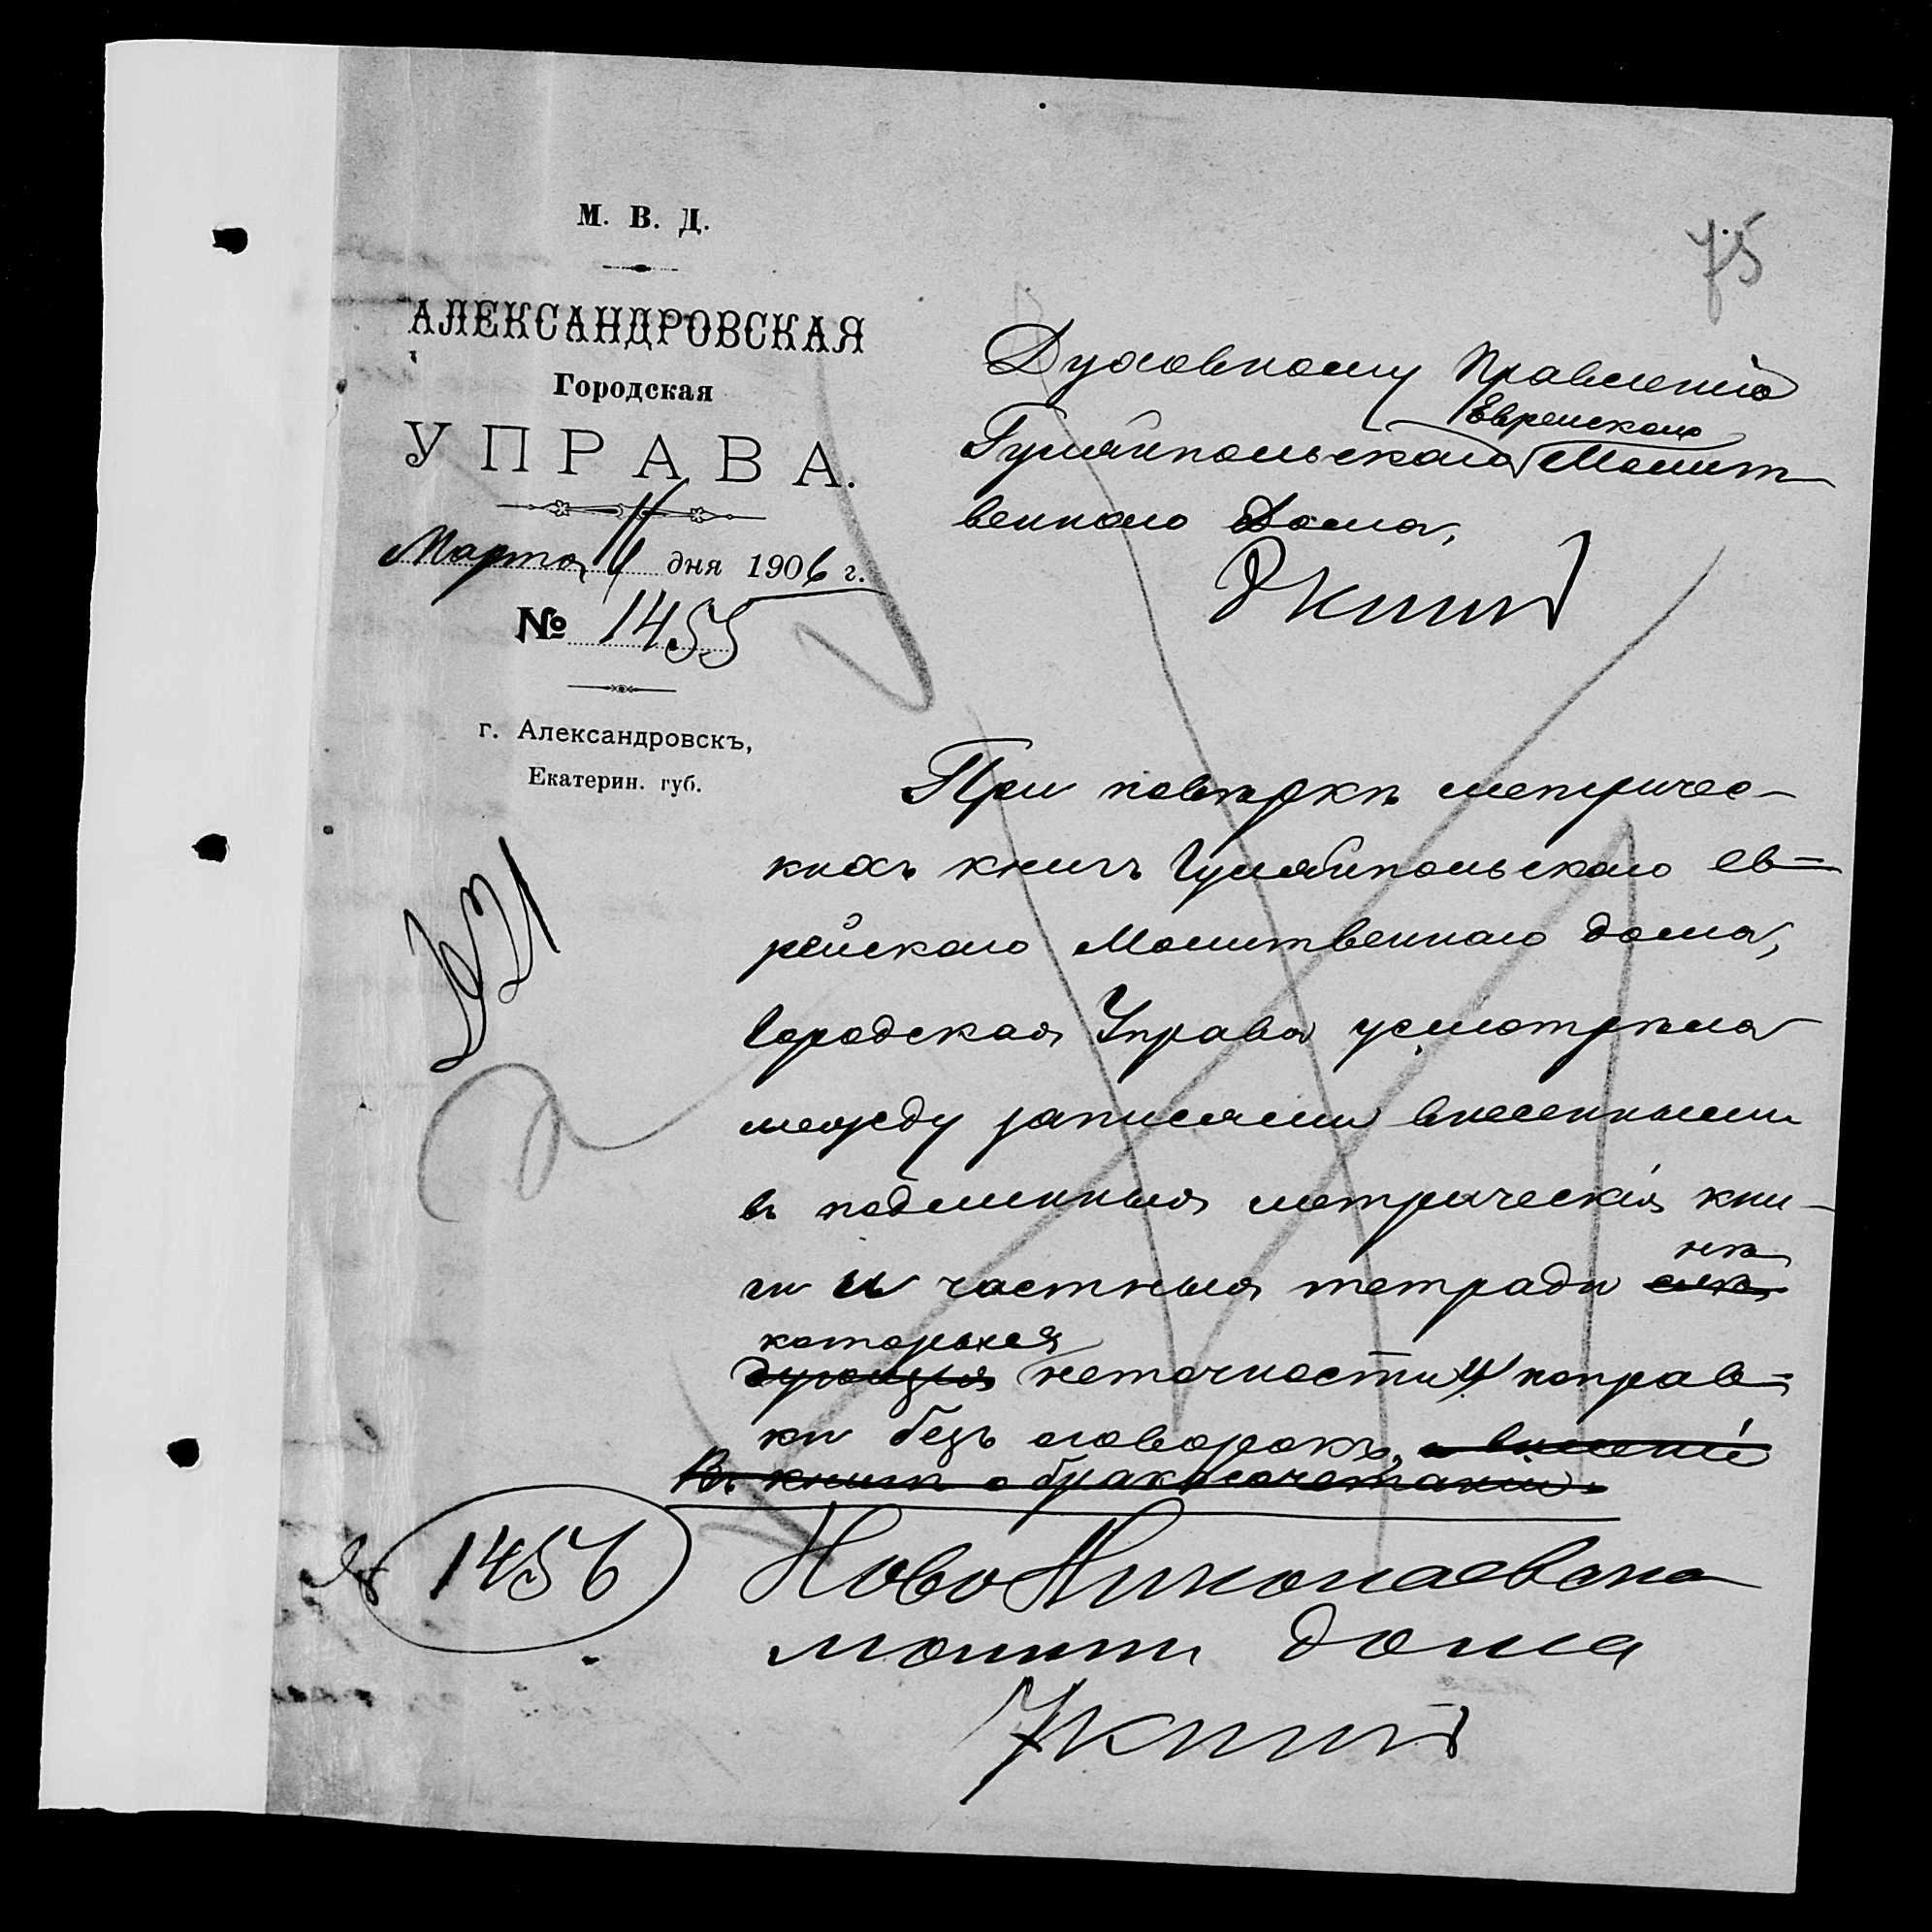 75
М. В. Д.
АЛЕКСАНДРОВСКАЯ
Городская
УПРАВА.
Марта 11 дня 1906 г.
№ 1455
г. Александровскъ,
Екатерин. губ.
Духовному Правленію
Еврейскаго
Гуляйпольскаго Молит
веннаго Дома,
При повѣркѣ метричес-
кихъ книгъ Гуляйпольскаго ев-
рейскаго Молитвеннаго дома,
Городская Управа усмотрѣла
между записями внесенными
въ подлинныя метрическія кни-
нѣ
ги и частныя тетради слѣ
которыя
дующія неточности и поправ-
ки безъ оговорокъ,
Въ книгѣ о бракосочетаніи
1456
НовоНиколаевска
молитв дома